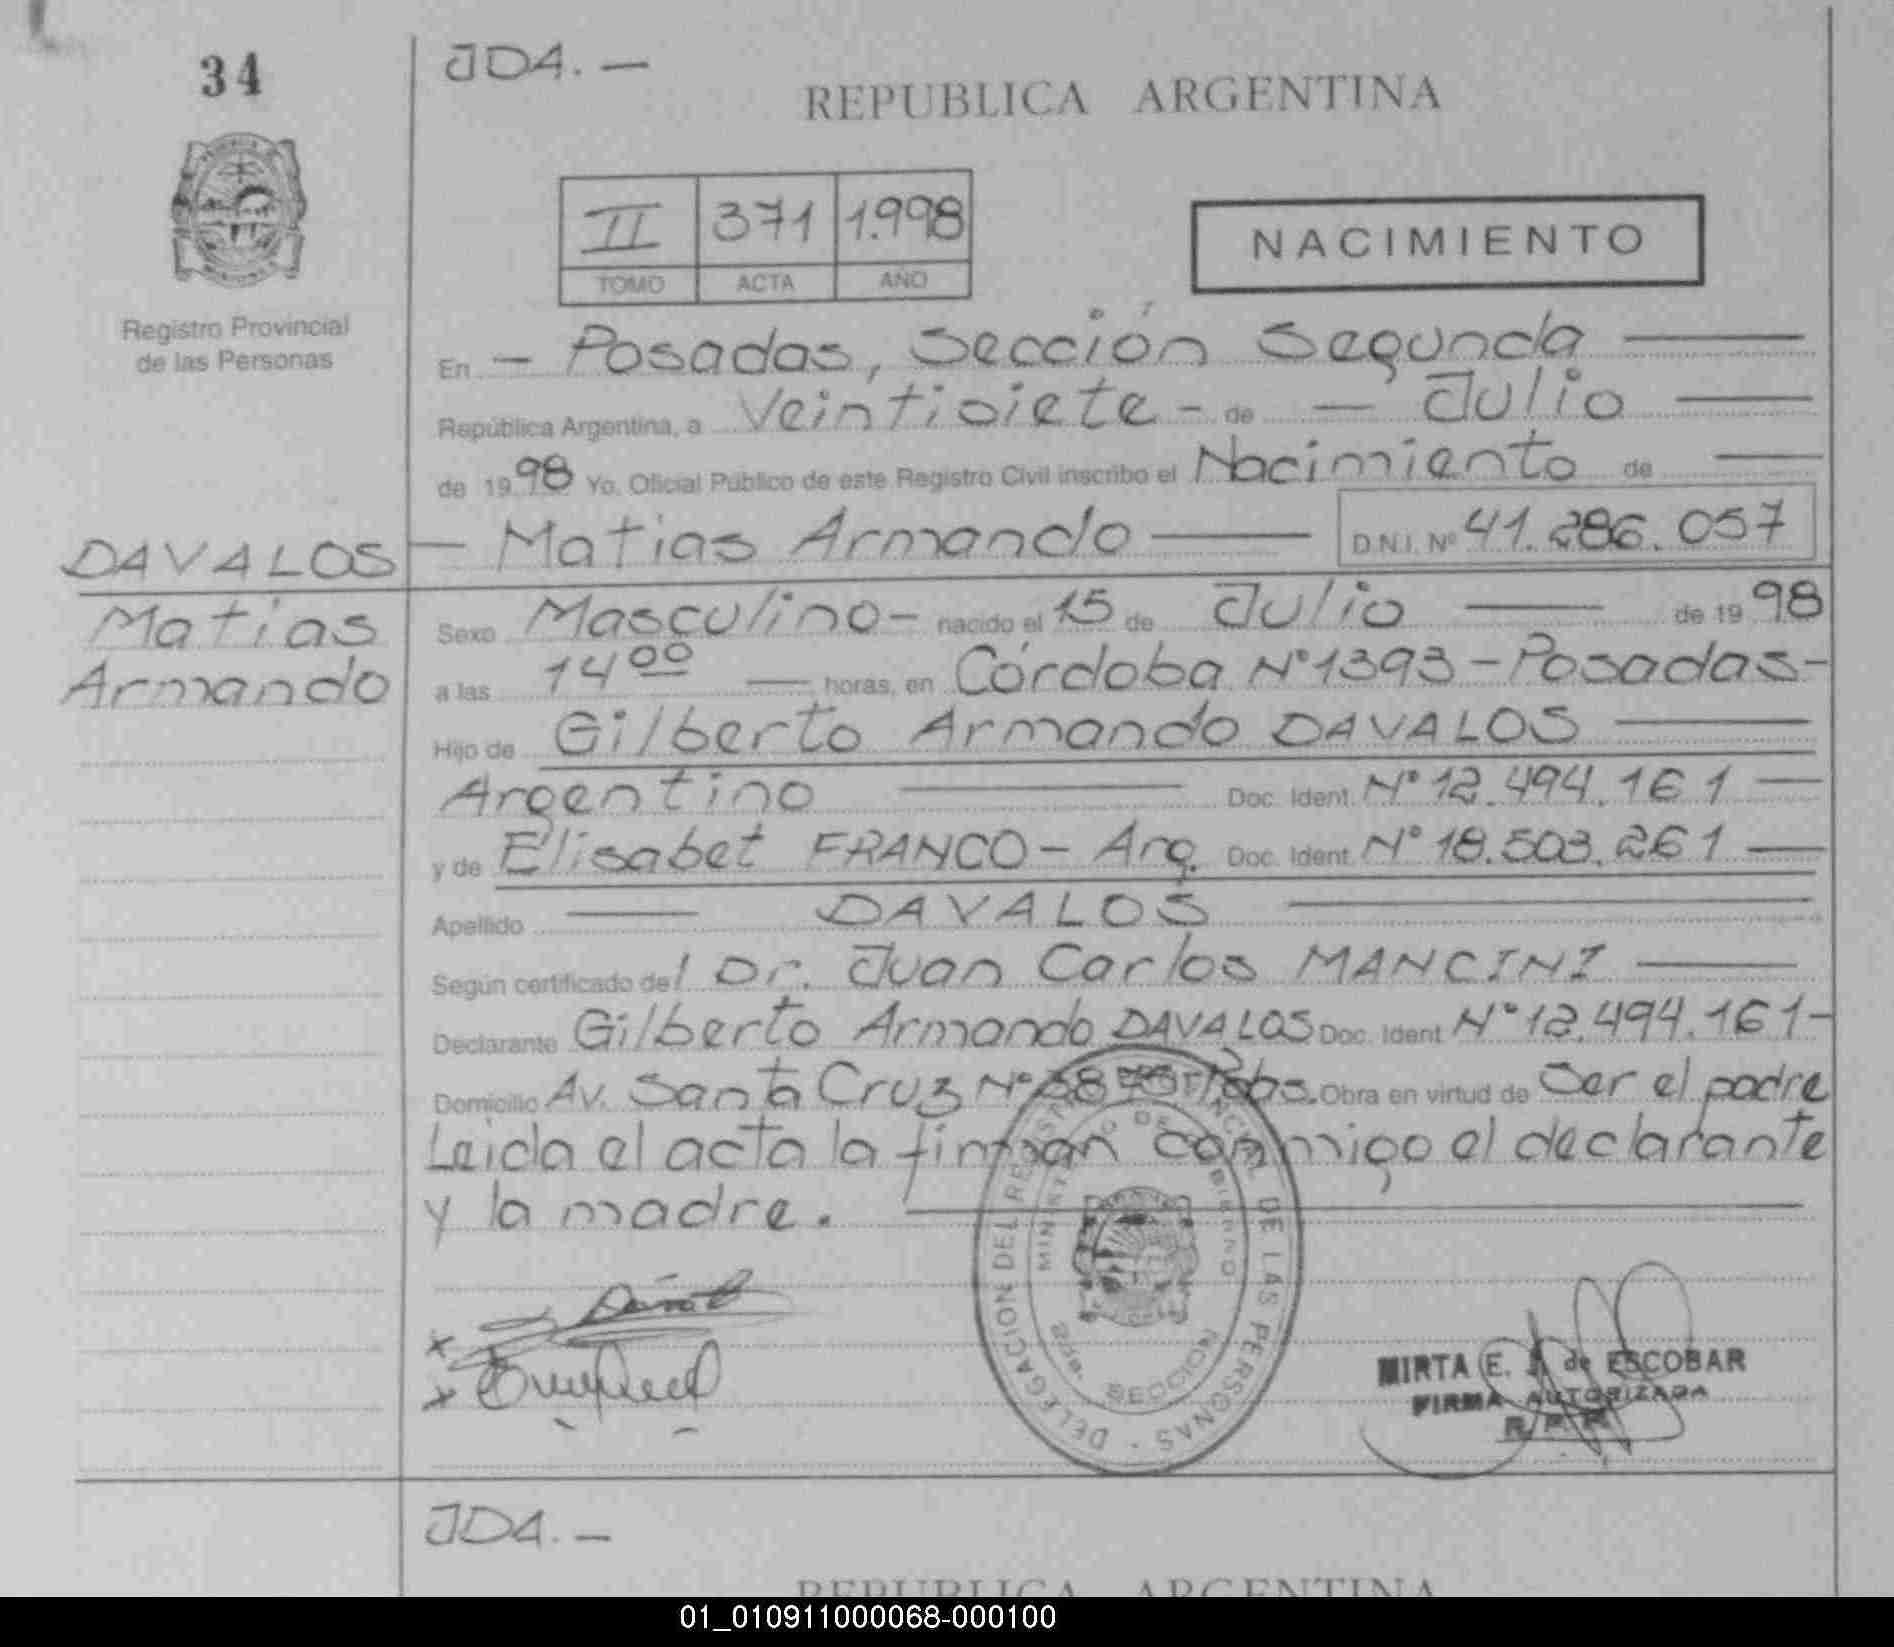 34
JDA. —
REPUBLICA ARGENTINA
II 371 1.998
TOMO ACTA AÑO
NACIMIENTO
Registro Provincial
de las Personas
En — Posadas, Sección Segunda —
República Argentina, a Veintisiete - de — Julio —
de 1998 Yo. Oficial Público de este Registro Civil inscribo el Nacimiento de —
DAVALOS — Matias Armando — D.N.I. Nº 41.286.057
Matias
Armando
Sexo Masculino - nacido el 15 de Julio — de 1998
a las 14 00 — horas, en Córdoba Nº 1393 - Posadas -
Hijo de Gilberto Armando DAVALOS —
Argentino — Doc. Ident. Nº 12.494.161 —
y de Elisabet FRANCO - Arg. Doc. Ident. Nº 18.503.261 —
Apellido — DAVALOS —
Según certificado del Dr. Juan Carlos MANCINI —
Declarante Gilberto Armando DAVALOS Doc. Ident Nº 12.494.161 -
Domicilio Av. Santa Cruz Nº Pdas. Obra en virtud de Ser el padre
Leida el acta la firman conmigo el declarante
y la madre. —
DELEGACION DEL REGISTRO PROVINCIAL DE LAS PERSONAS
MINISTERIO DE GOBIERNO
SECCION
MIRTA E. de ESCOBAR
FIRMA AUTORIZADA
R. P. P.
JDA. —
REPUBLICA ARGENTINA
01_010911000068-000100